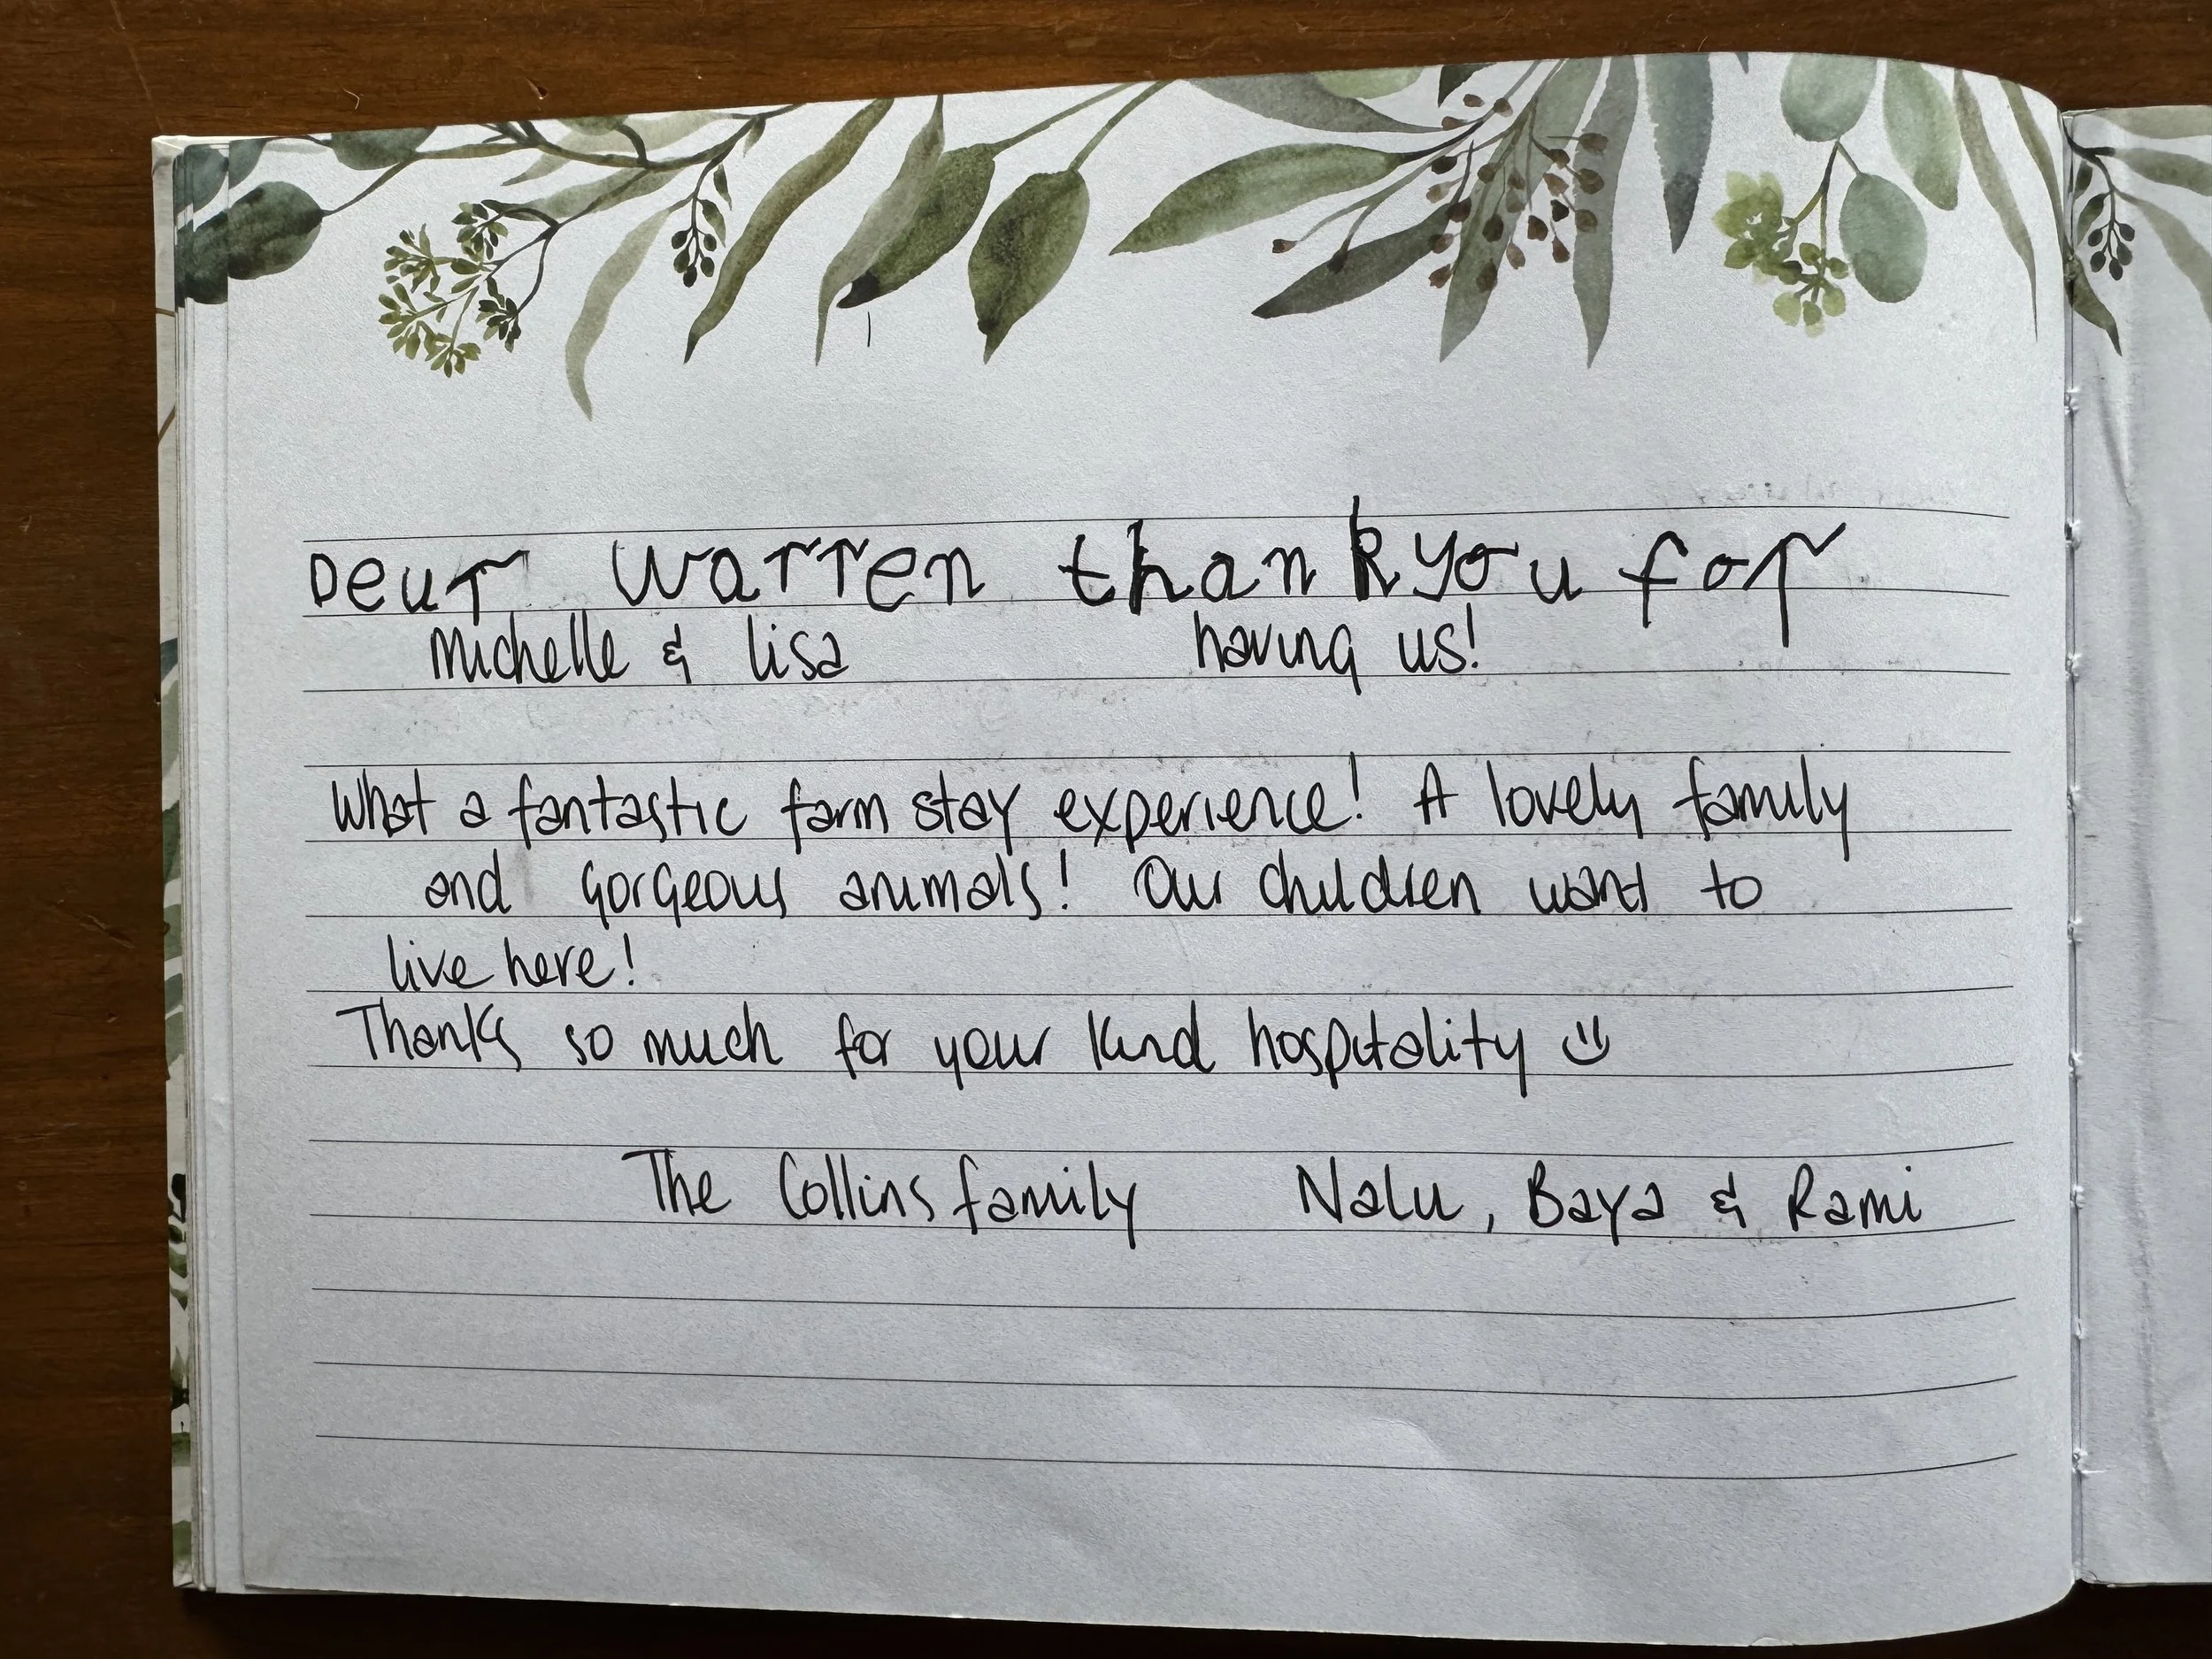 Dear Warren thank you for
Michelle & Lisa having us!
What a fantastic farm stay experience! A lovely family
and gorgeous animals! Our children want to
live here!
Thanks so much for your kind hospitality
The Collins family Nalu, Baya & Rami